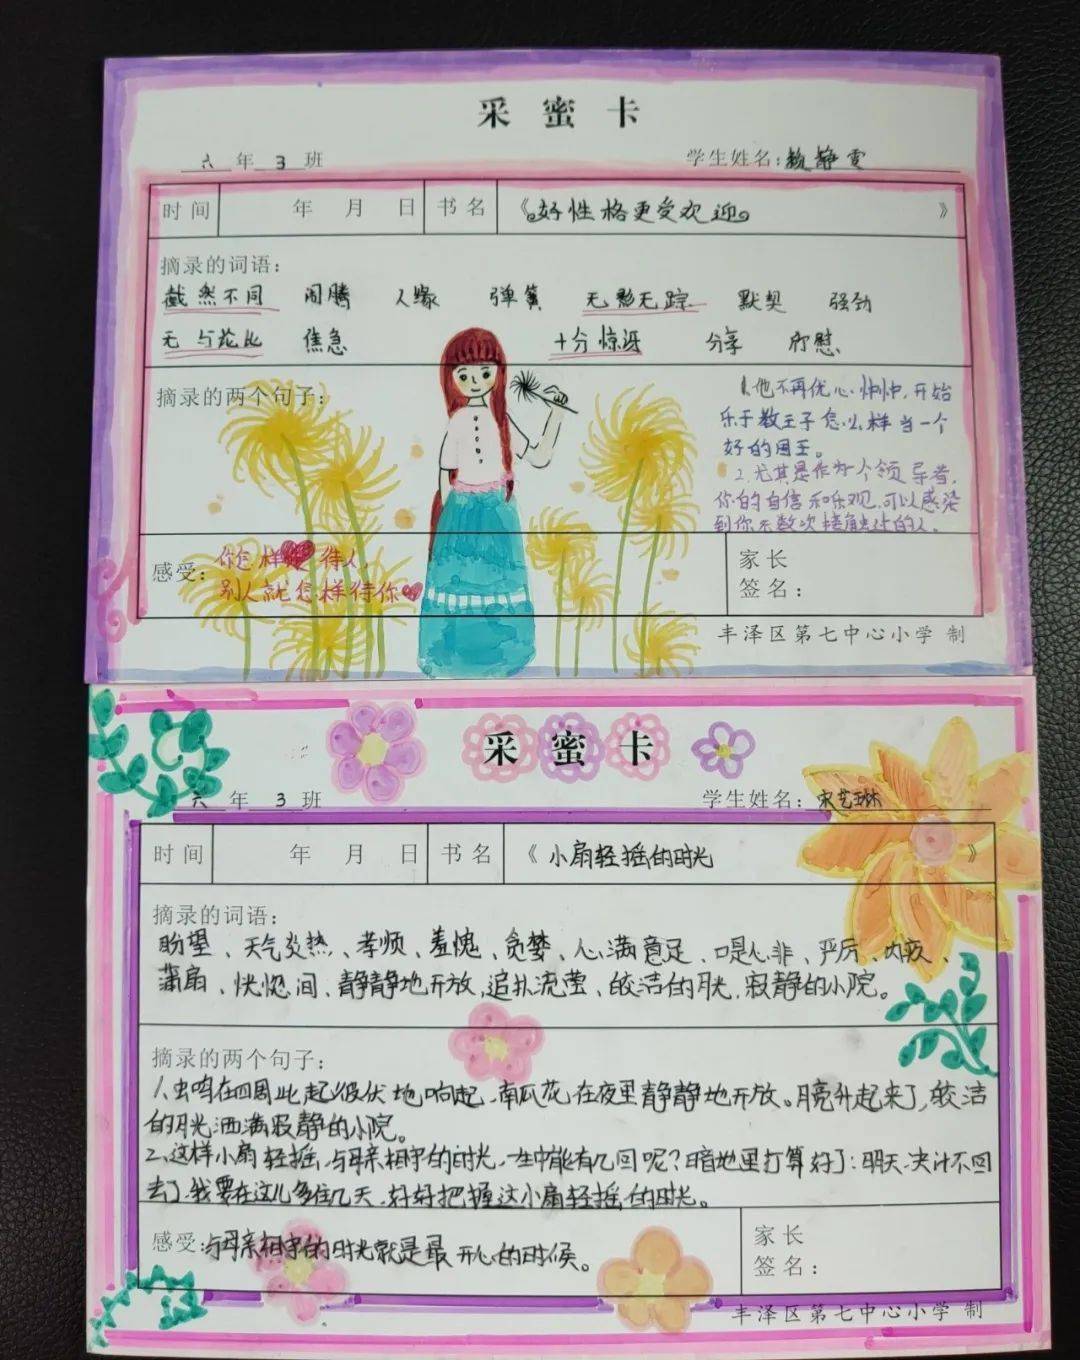 采蜜卡
六年3班 学生姓名：赖静雯
时间 年 月 日 书名 《好性格更受欢迎》
摘录的词语：
截然不同 闹腾 人缘 弹簧 无影无踪 默契 强劲
无与伦比 焦急 十分惊讶 分享 慰
摘录的两个句子：
1.他不再忧心忡忡,开始
乐于教王子怎么样当一个
好的国王。
2.尤其是作为个领导者,
你的自信和乐观,可以感染
到你无数次接触过的人。
感受：你怎样待人,
别人就怎样待你
家长
签名：
丰泽区第七中心小学 制
采蜜卡
六年3班 学生姓名：宋艺琳
时间 年 月 日 书名 《小扇轻摇的时光》
摘录的词语：
盼望、天气炎热、孝顺、羞愧、贪婪、心满意足、口是心非、严厉、内疚、
蒲扇、恍惚间、静静地开放,追扑流萤、皎洁的月光,寂静的小院。
摘录的两个句子：
1.虫鸣在四周此起彼伏地响起,南瓜花在夜里静静地开放。月亮升起来了,皎洁
的月光洒满寂静的小院。
2.这样小扇轻摇,与母亲相守的时光,一生中能有几回呢?暗地里打算好了:明天,决计不回
去了,我要在这儿多住几天,好好把握这小扇轻摇的时光。
感受：与母亲相守的时光就是最开心的时候。
家长
签名：
丰泽区第七中心小学 制